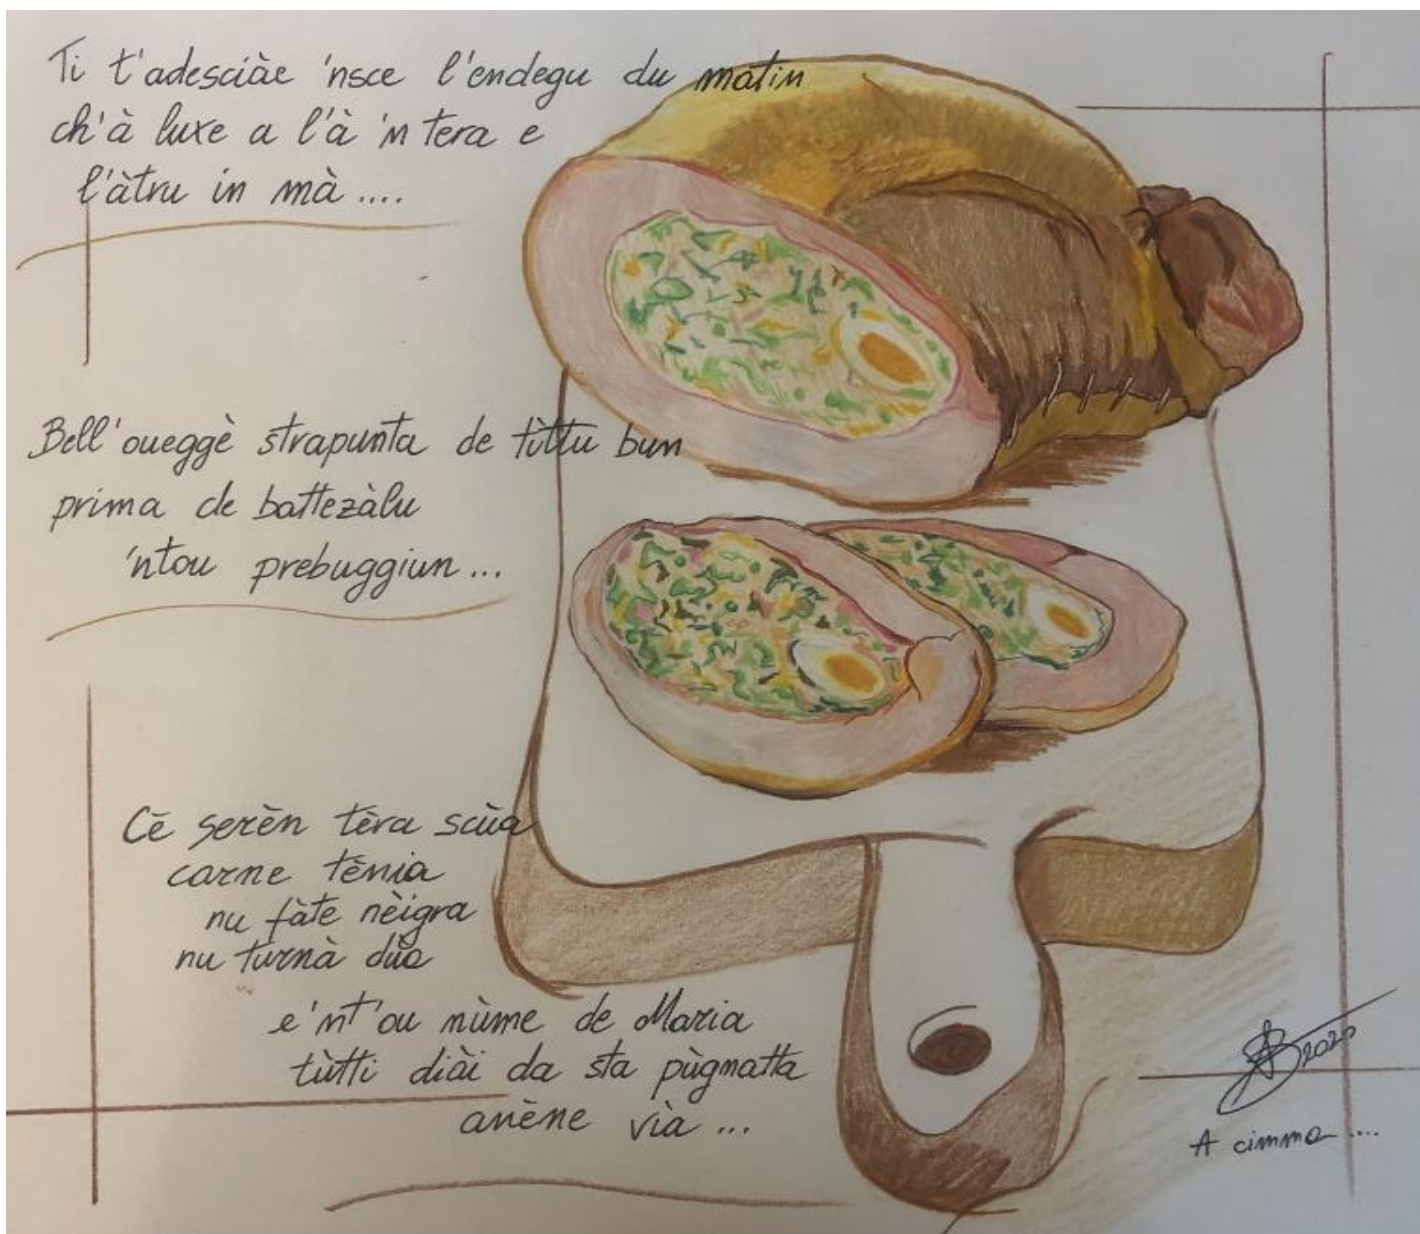 Ti t'adesciàe 'nsce l'endegu du matin
ch'à luxe a l'à 'n tera e
l'àtru in mà ....
Bell'oueggè strapunta de tùttu bun
prima de battezàlu
'ntou prebuggiun ...
Cē serèn tèra scùa
carne tènia
nu fàte nèigra
nu turnà dùa
e 'nt'ou nùme de Maria
tùtti diài da sta pùgnatta
anène vìa ...
2020
A cimma ....